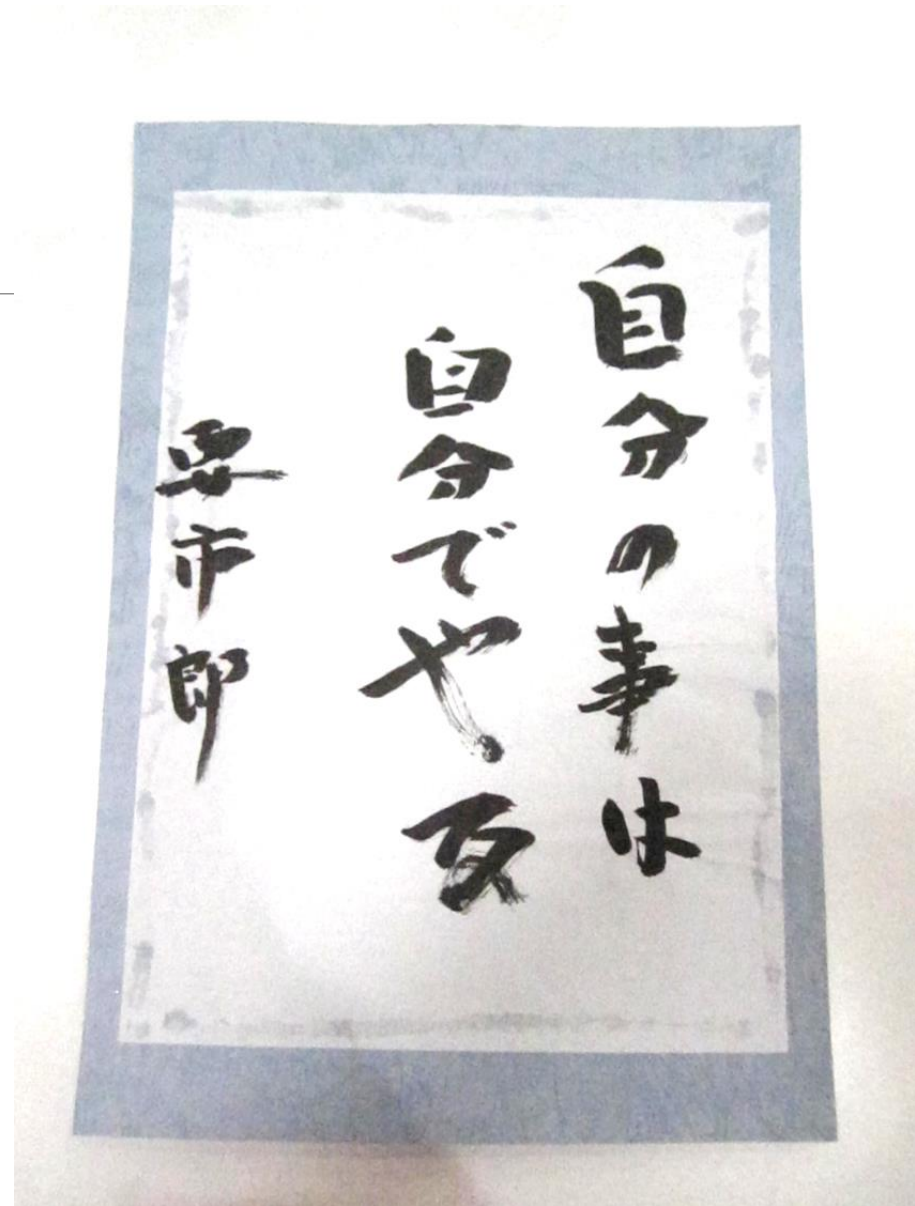 自分の事は
自分でやる
要市郎